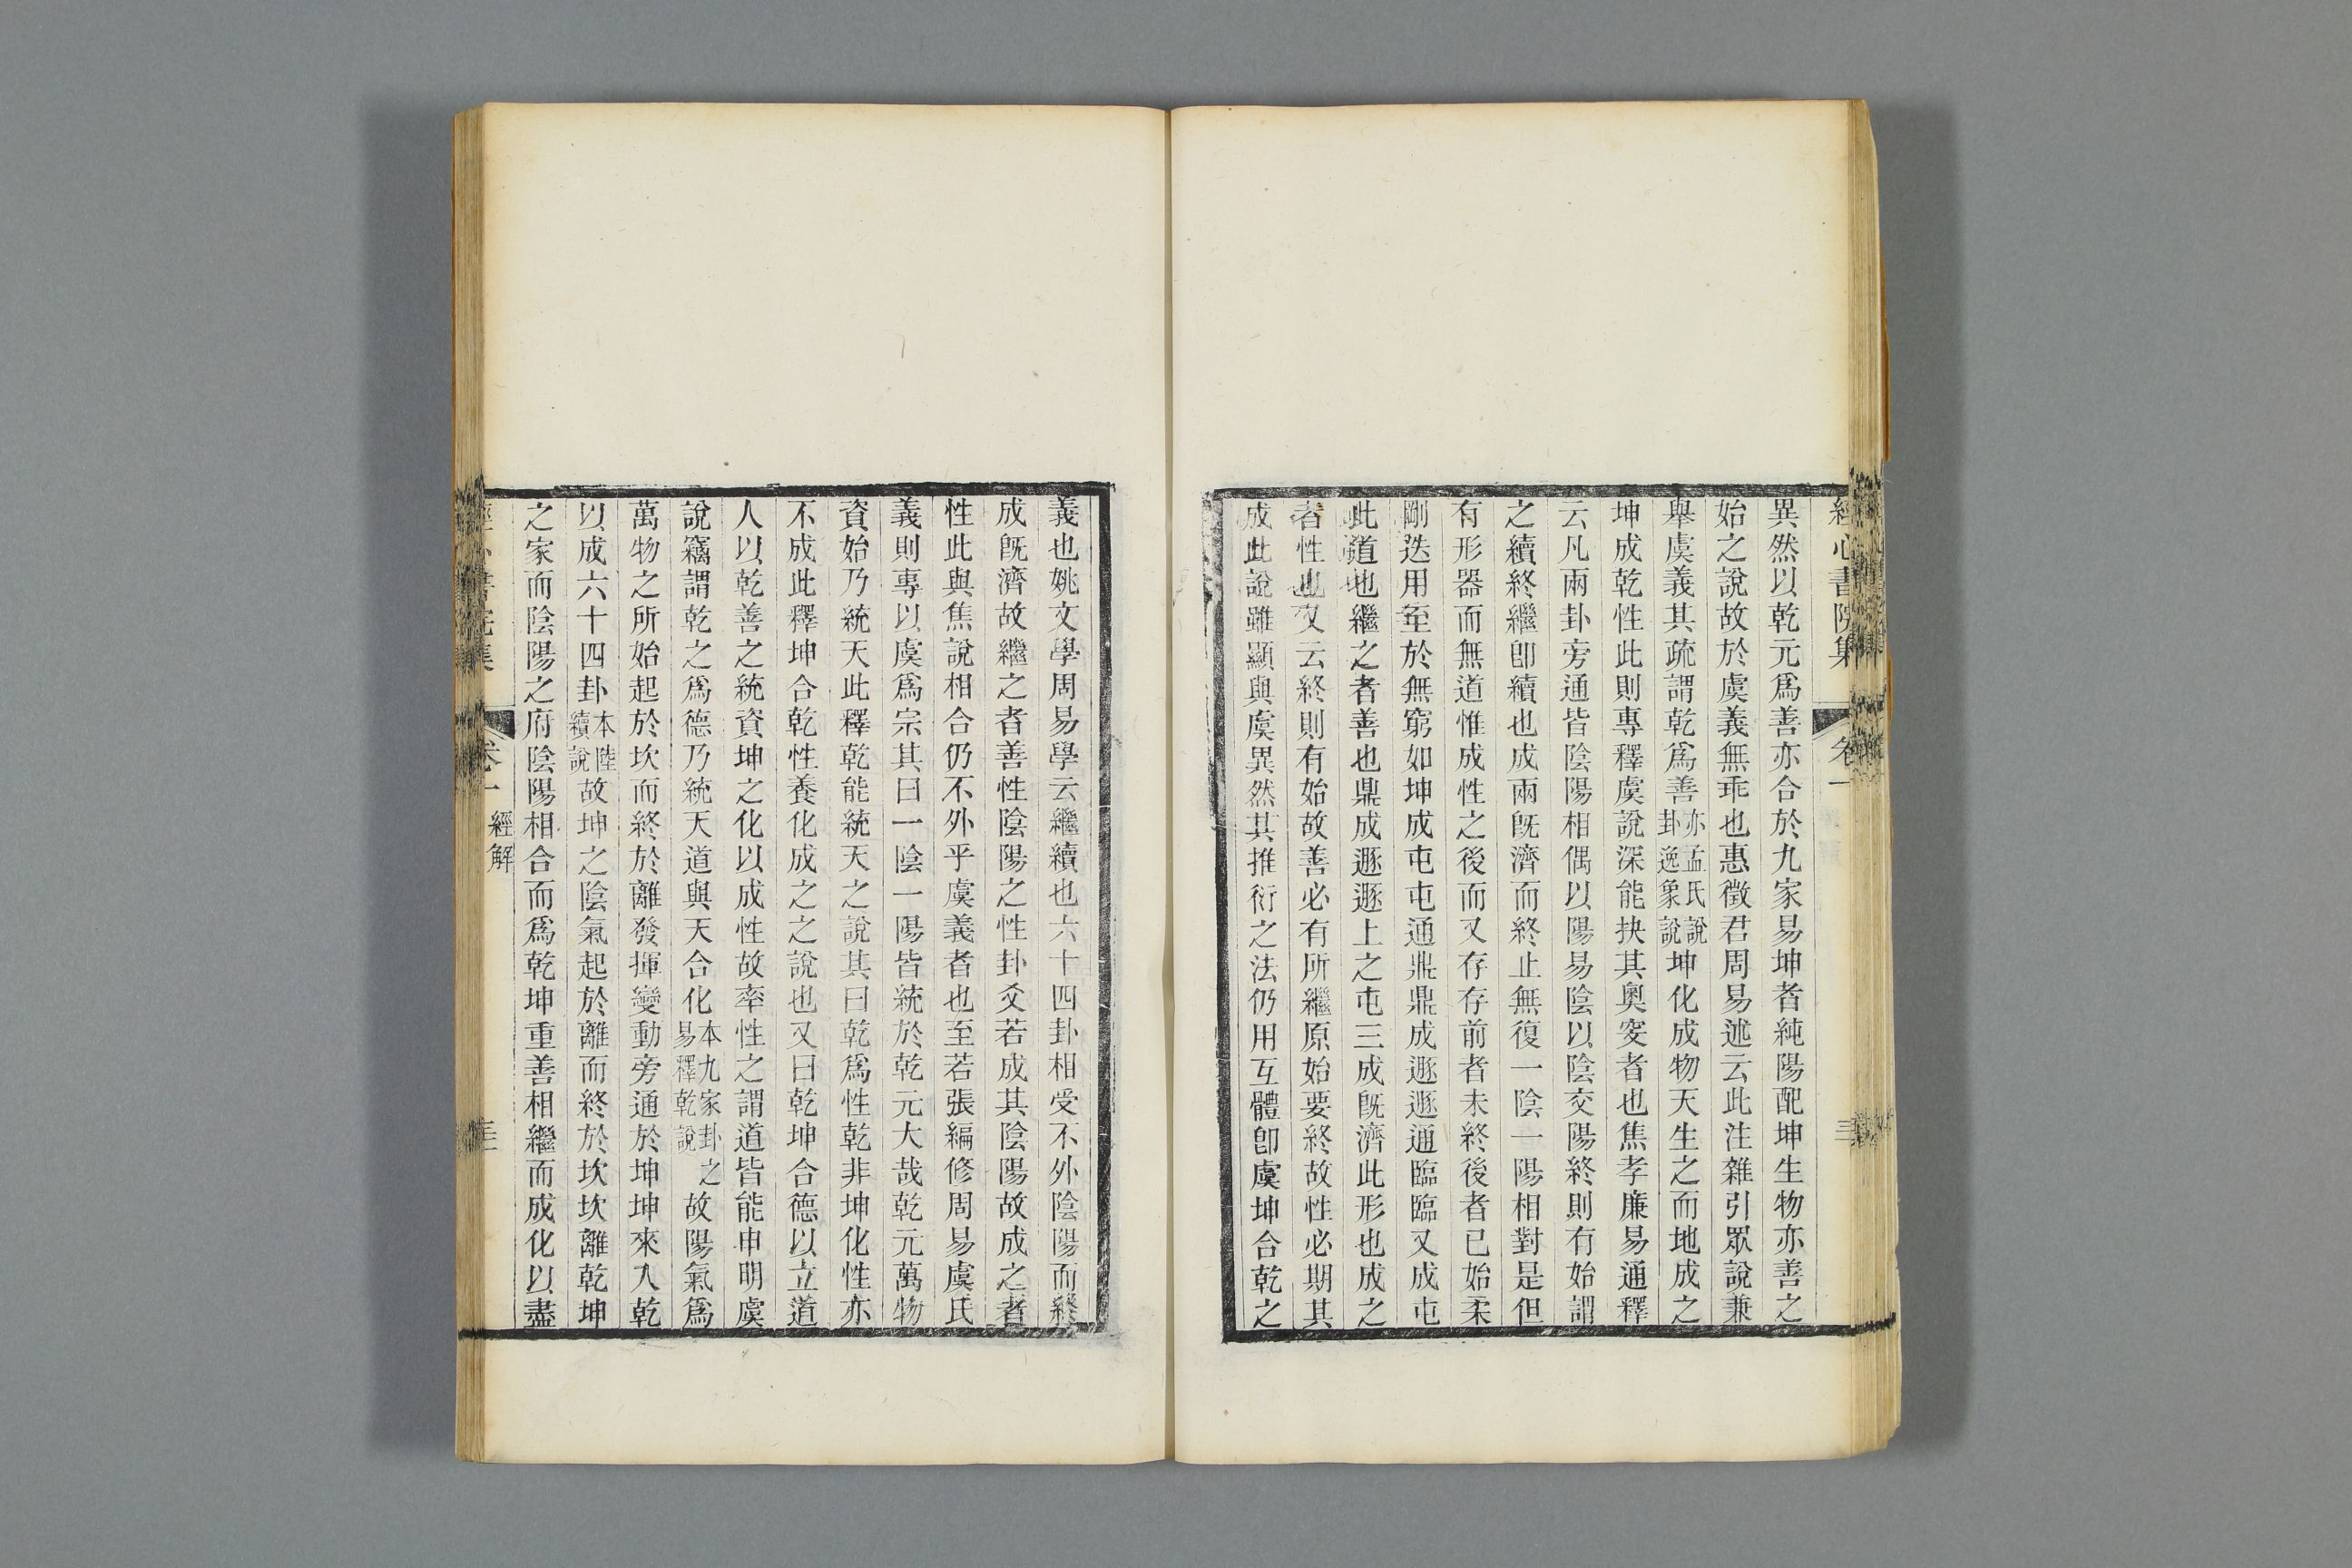 經心書院集 卷一 三
異然以乾元爲善亦合於九家易坤者純陽配坤生物亦善之
始之說故於虞義無乖也惠徵君周易述云此注雜引眾說兼
舉虞義其疏謂乾爲善亦孟氏說卦逸象說坤化成物天生之而地成之
坤成乾性此則專釋虞說深能抉其奧窔者也焦孝廉易通釋
云凡兩卦旁通皆陰陽相偶以陽易陰以陰交陽終則有始謂
之續終繼卽續也成兩旣濟而終止無復一陰一陽相對是但
有形器而無道惟成性之後而又存存前者未終後者已始柔
剛迭用至於無窮如坤成屯屯通鼎鼎成遯遯通臨臨又成屯
此道也繼之者善也鼎成遯遯上之屯三成旣濟此形也成之
者性也又云終則有始故善必有所繼原始要終故性必期其
成此說雖顯與虞異然其推衍之法仍用互體卽虞坤合乾之
義也姚文學周易學云繼續也六十四卦相受不外陰陽而終
成旣濟故繼之者善性陰陽之性卦爻若成其陰陽故成之者
性此與焦說相合仍不外乎虞義者也至若張編修周易虞氏
義則專以虞爲宗其曰一陰一陽皆統於乾元大哉乾元萬物
資始乃統天此釋乾能統天之說其曰乾爲性乾非坤化性亦
不成此釋坤合乾性養化成之之說也又曰乾坤合德以立道
人以乾善之統資坤之化以成性故率性之謂道皆能申明虞
說竊謂乾之爲德乃統天道與天合化本九家卦之易釋乾說故陽氣爲
萬物之所始起於坎而終於離發揮變動旁通於坤坤來入乾
以成六十四卦本陸績說故坤之陰氣起於離而終於坎坎離乾坤
之家而陰陽之府陰陽相合而爲乾坤重善相繼而成化以盡
卷一 經解 三